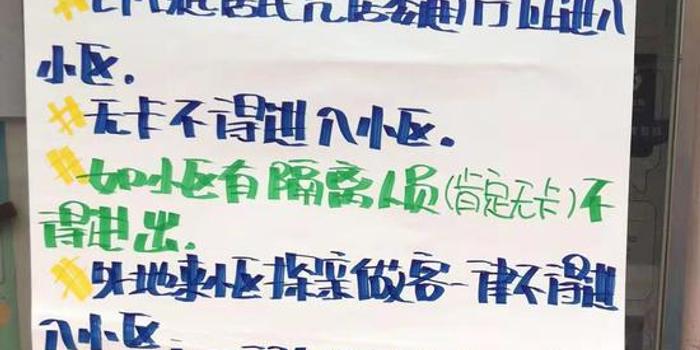 居民凭居委通行证进入
小区.
#无卡不得进入小区.
#如小区有隔离人员(肯定无卡)不
得进出.
#外地来小区探亲做客一律不得进
入小区